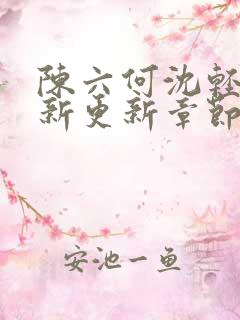 陳六何沈輕
新更新章節
安池一鱼